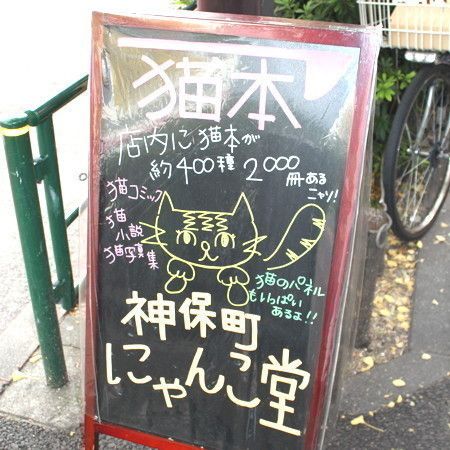 猫本
店内に猫本が
約400種 2000冊ある
ニャリ!
猫コミック
猫
小説
猫写真集
猫のパネル
もいっぱい
あるよ!!
神保町
にゃんこ堂